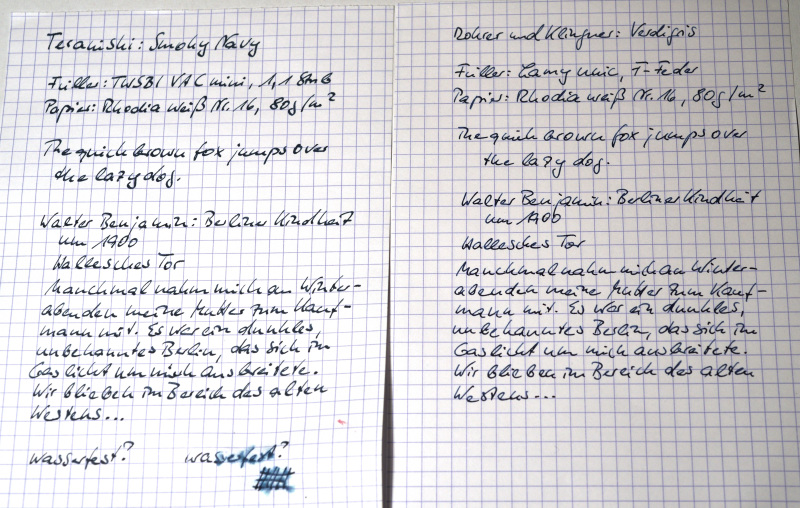 Teranishi: Smoky Navy
Füller: TWSBI VAC mini, 1,1 Stub
Papier: Rhodia weiß Nr. 16, 80g/m²
The quick brown fox jumps over
the lazy dog.
Walter Benjamin: Berliner Kindheit
um 1900
Wallesches Tor
Manchmal nahm mich an Winter-
abenden meine Mutter zum Kauf-
mann mit. Es war ein dunkles,
unbekanntes Berlin, das sich im
Gaslicht um mich ausbreitete.
Wir blieben im Bereich des alten
Westens...
wasserfest? wasserfest?
Rohrer und Klingner: Verdigris
Füller: Lamy unic, F-Feder
Papier: Rhodia weiß Nr. 16, 80g/m²
The quick brown fox jumps over
the lazy dog.
Walter Benjamin: Berliner Kindheit
um 1900
Wallesches Tor
Manchmal nahm mich an Winter-
abenden meine Mutter zum Kauf-
mann mit. Es war ein dunkles,
unbekanntes Berlin, das sich im
Gaslicht um mich ausbreitete.
Wir blieben im Bereich des alten
Westens...